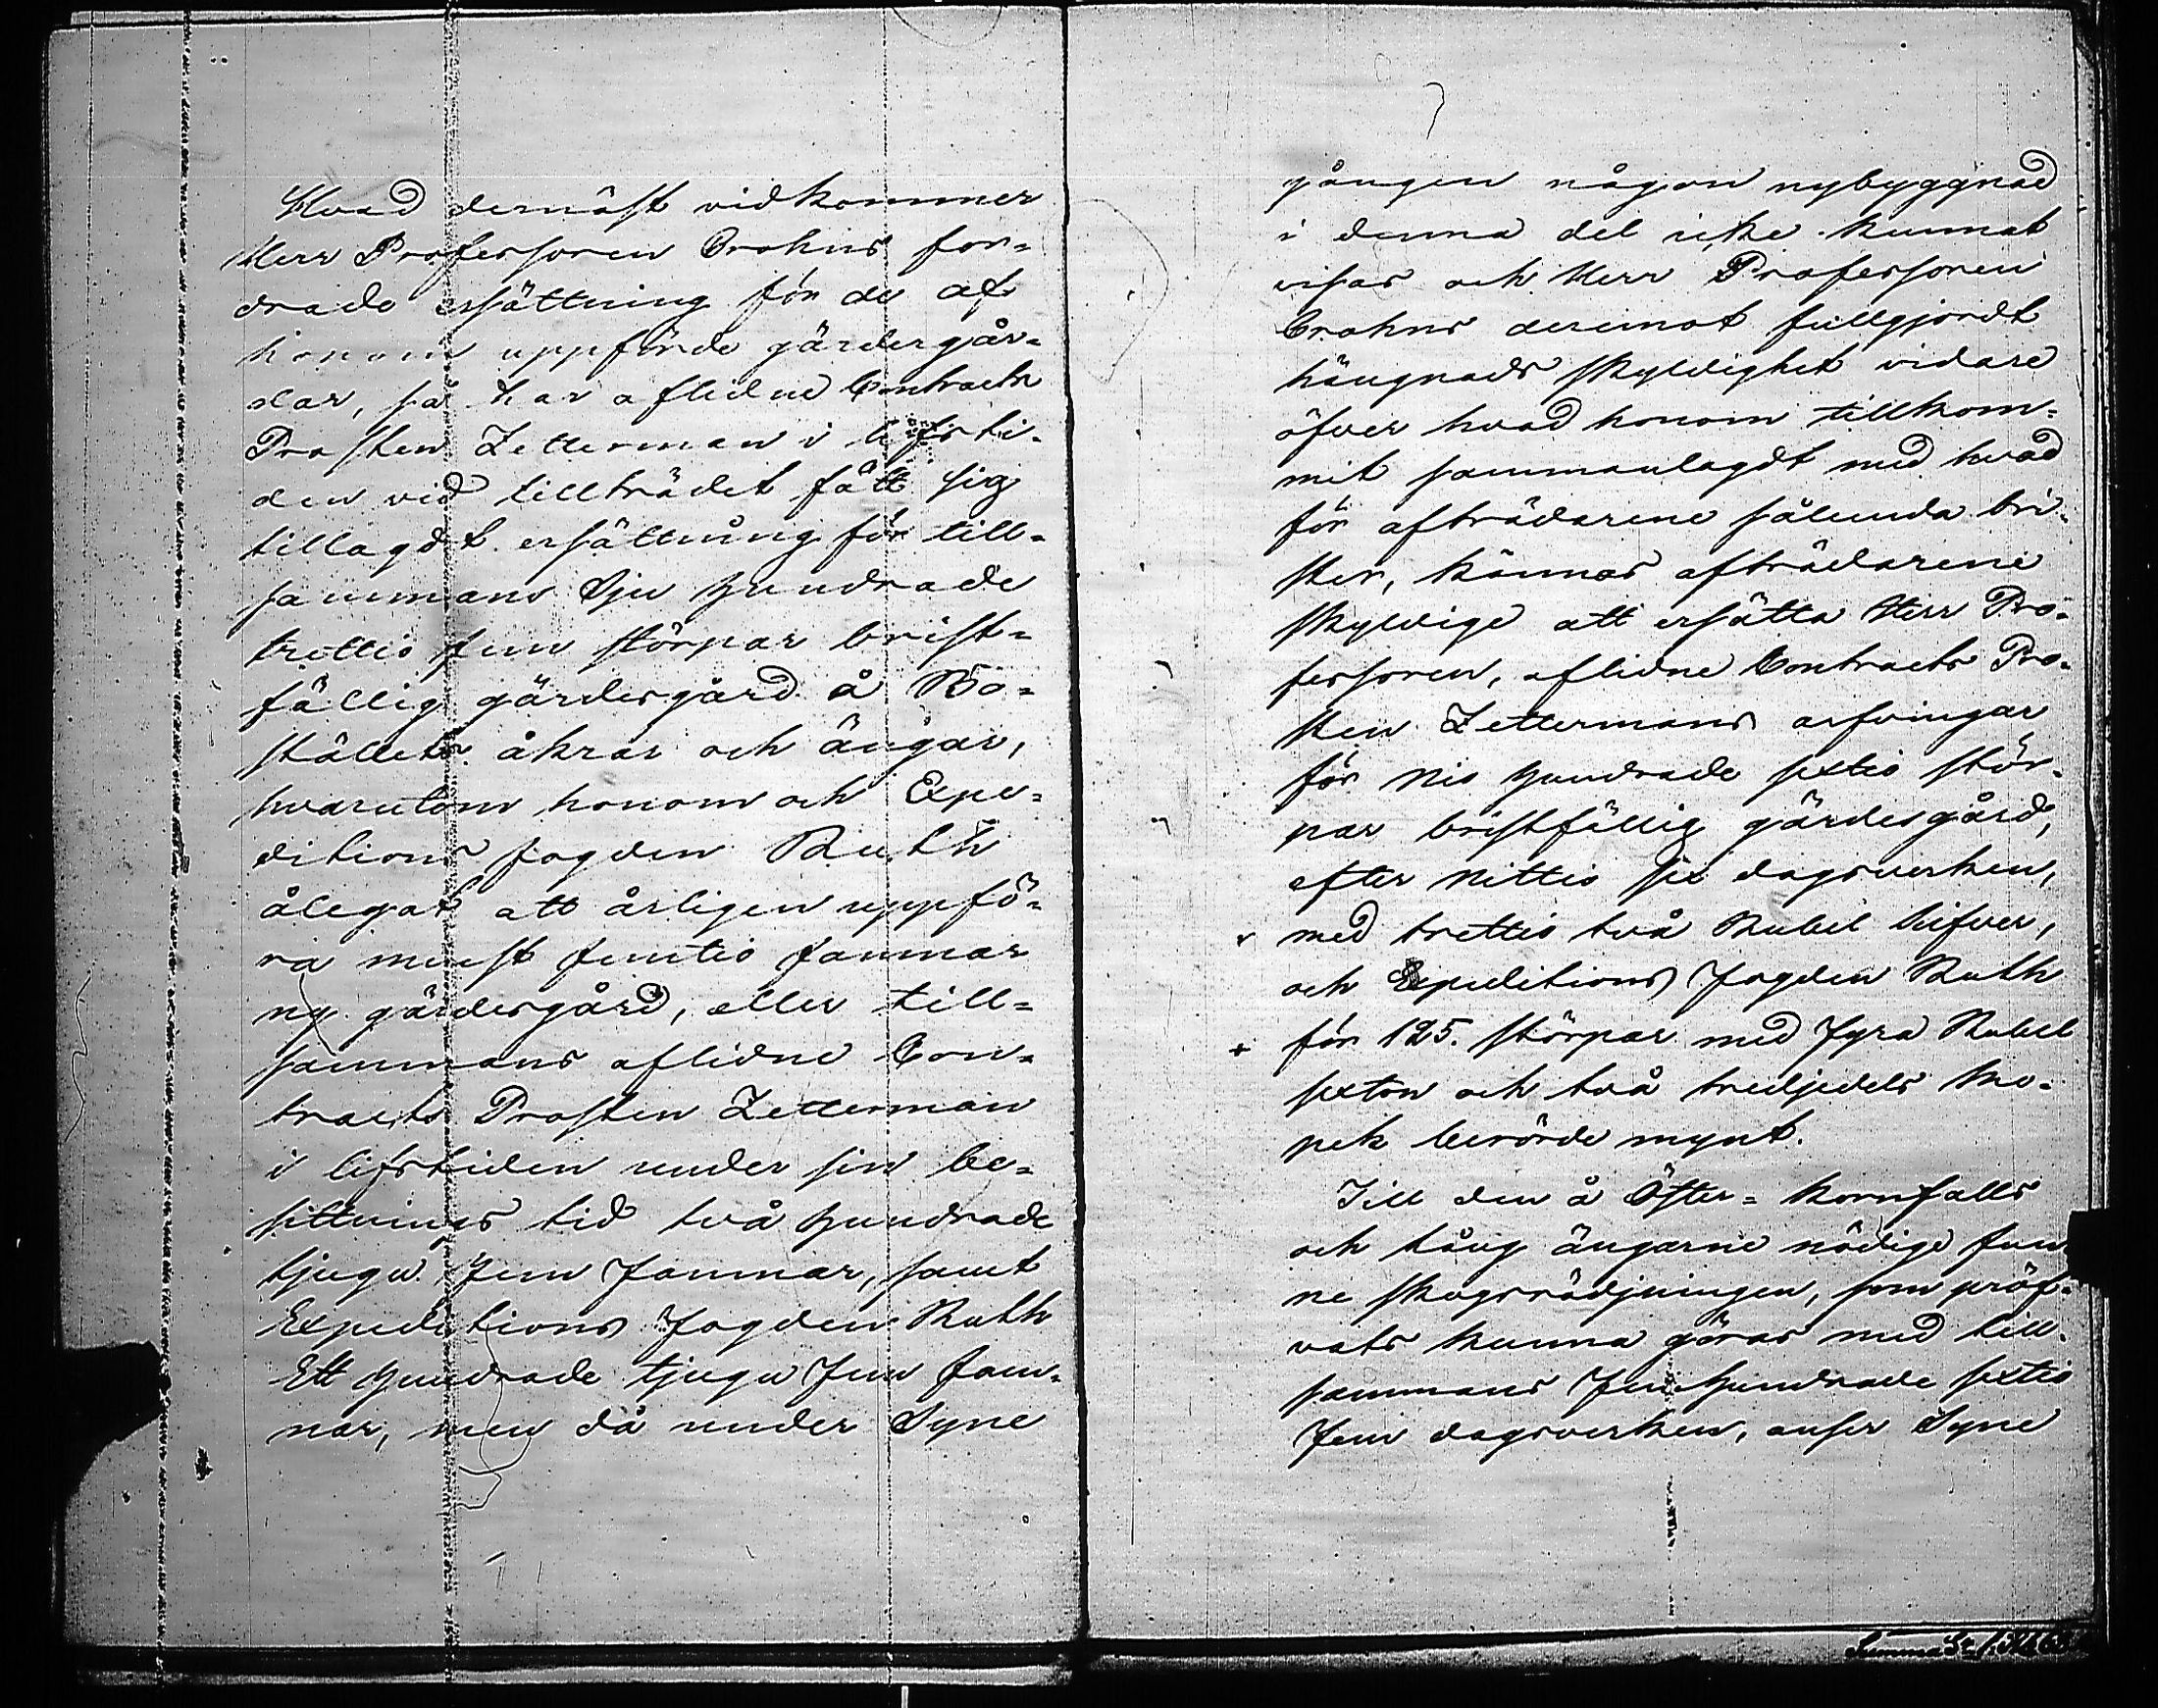 Hvad dernäst vidkommer
Herr Professoren Crohns for-
drade ersättning för de af
honom uppförde gärdesgår-
dar, så har aflidne Contracts
Prosten Zetterman i lifsti-
den vid tillträdet fått sig
tillagdt ersättning för till-
sammans Sju hundrade
trettio fem störpar brist-
fällig gärdesgård å Bo-
ställets åkrar och ängar,
hvarutom honom och Expe-
ditions fogden Ruth
ålegat att årligen uppfö-
ra minst femtio famnar
ny gärdesgård, eller till-
sammans aflidne Con-
tracts Prosten Zetterman
i lifstiden under sin be-
sittnings tid två hundrade
tjugu fem famnar, samt
Expeditions Fogden Ruth
Ett hundrade tjugu fem fam-
nar, men då under Syne
gången någon nybyggnad
i denna del icke kunnat
visas och Herr Professoren
Crohns deremot fullgjordt
hängnads skyldighet vidare
öfver hvad honom tillkom-
mit sammanlagdt med hvad
för afträdarene sålunda bri-
ster, kännas afträdarene
skyldige att ersätta Herr Pro-
fessoren, aflidne Contracts Pro-
sten Zettermans arfvingar
för Nio hundrade sextio stör-
par bristfällig gärdesgård,
efter Nittio sex dagsverken,
med trettio två Rubel silfver,
och Expeditions Fogden Ruth
+ för 125. störpar med Fyra Rubel
sexton och två tredjedels ko-
pek berörde mynt.
Till den å Öfter- Kornfalls
och tång ängarne nödige fun
ne skogsrödjningen, som pröf-
vats kunna göras med till-
sammans Fem hundrade sextio
Fem dagsverken, anser Syne
Summa